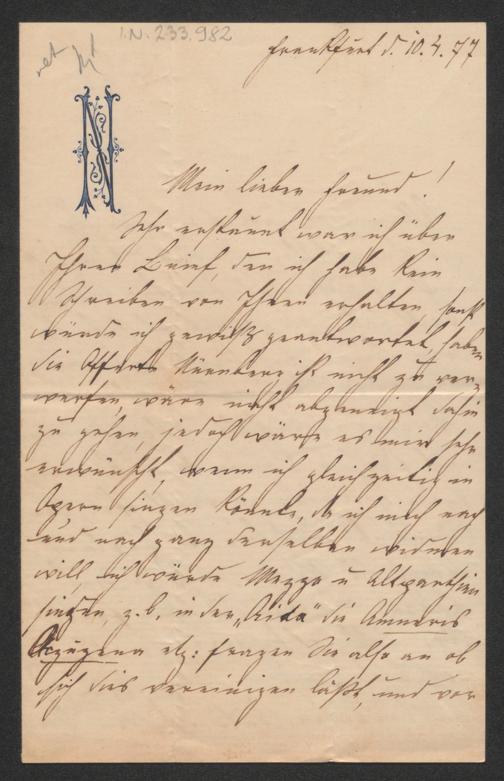 I.N. 233.982
Frankfurt d. 10.4.77
N
Mein lieber Freund!
Sehr erstaunt war ich über
Ihren Brief, den ich habe kein
Schreiben von Ihnen erhalten, sonst
würde ich gewiß geantwortet haben
die Offerte Nürnberg ist nicht zu ver-
werfen, wäre nicht abgeneigt dahin
zu gehen, jedoch wäre es mir sehr
erwünscht, wenn ich gleichzeitig in
Opern singen könnte, da ich mich nach
und nach ganz derselben widmen
will, ich würde Mezzo u Altparthien
singen, z.b. in der „Aida" die Amneris
Azuzena etz: fragen Sie also an ob
sich dies vereinigen läßt, und vor